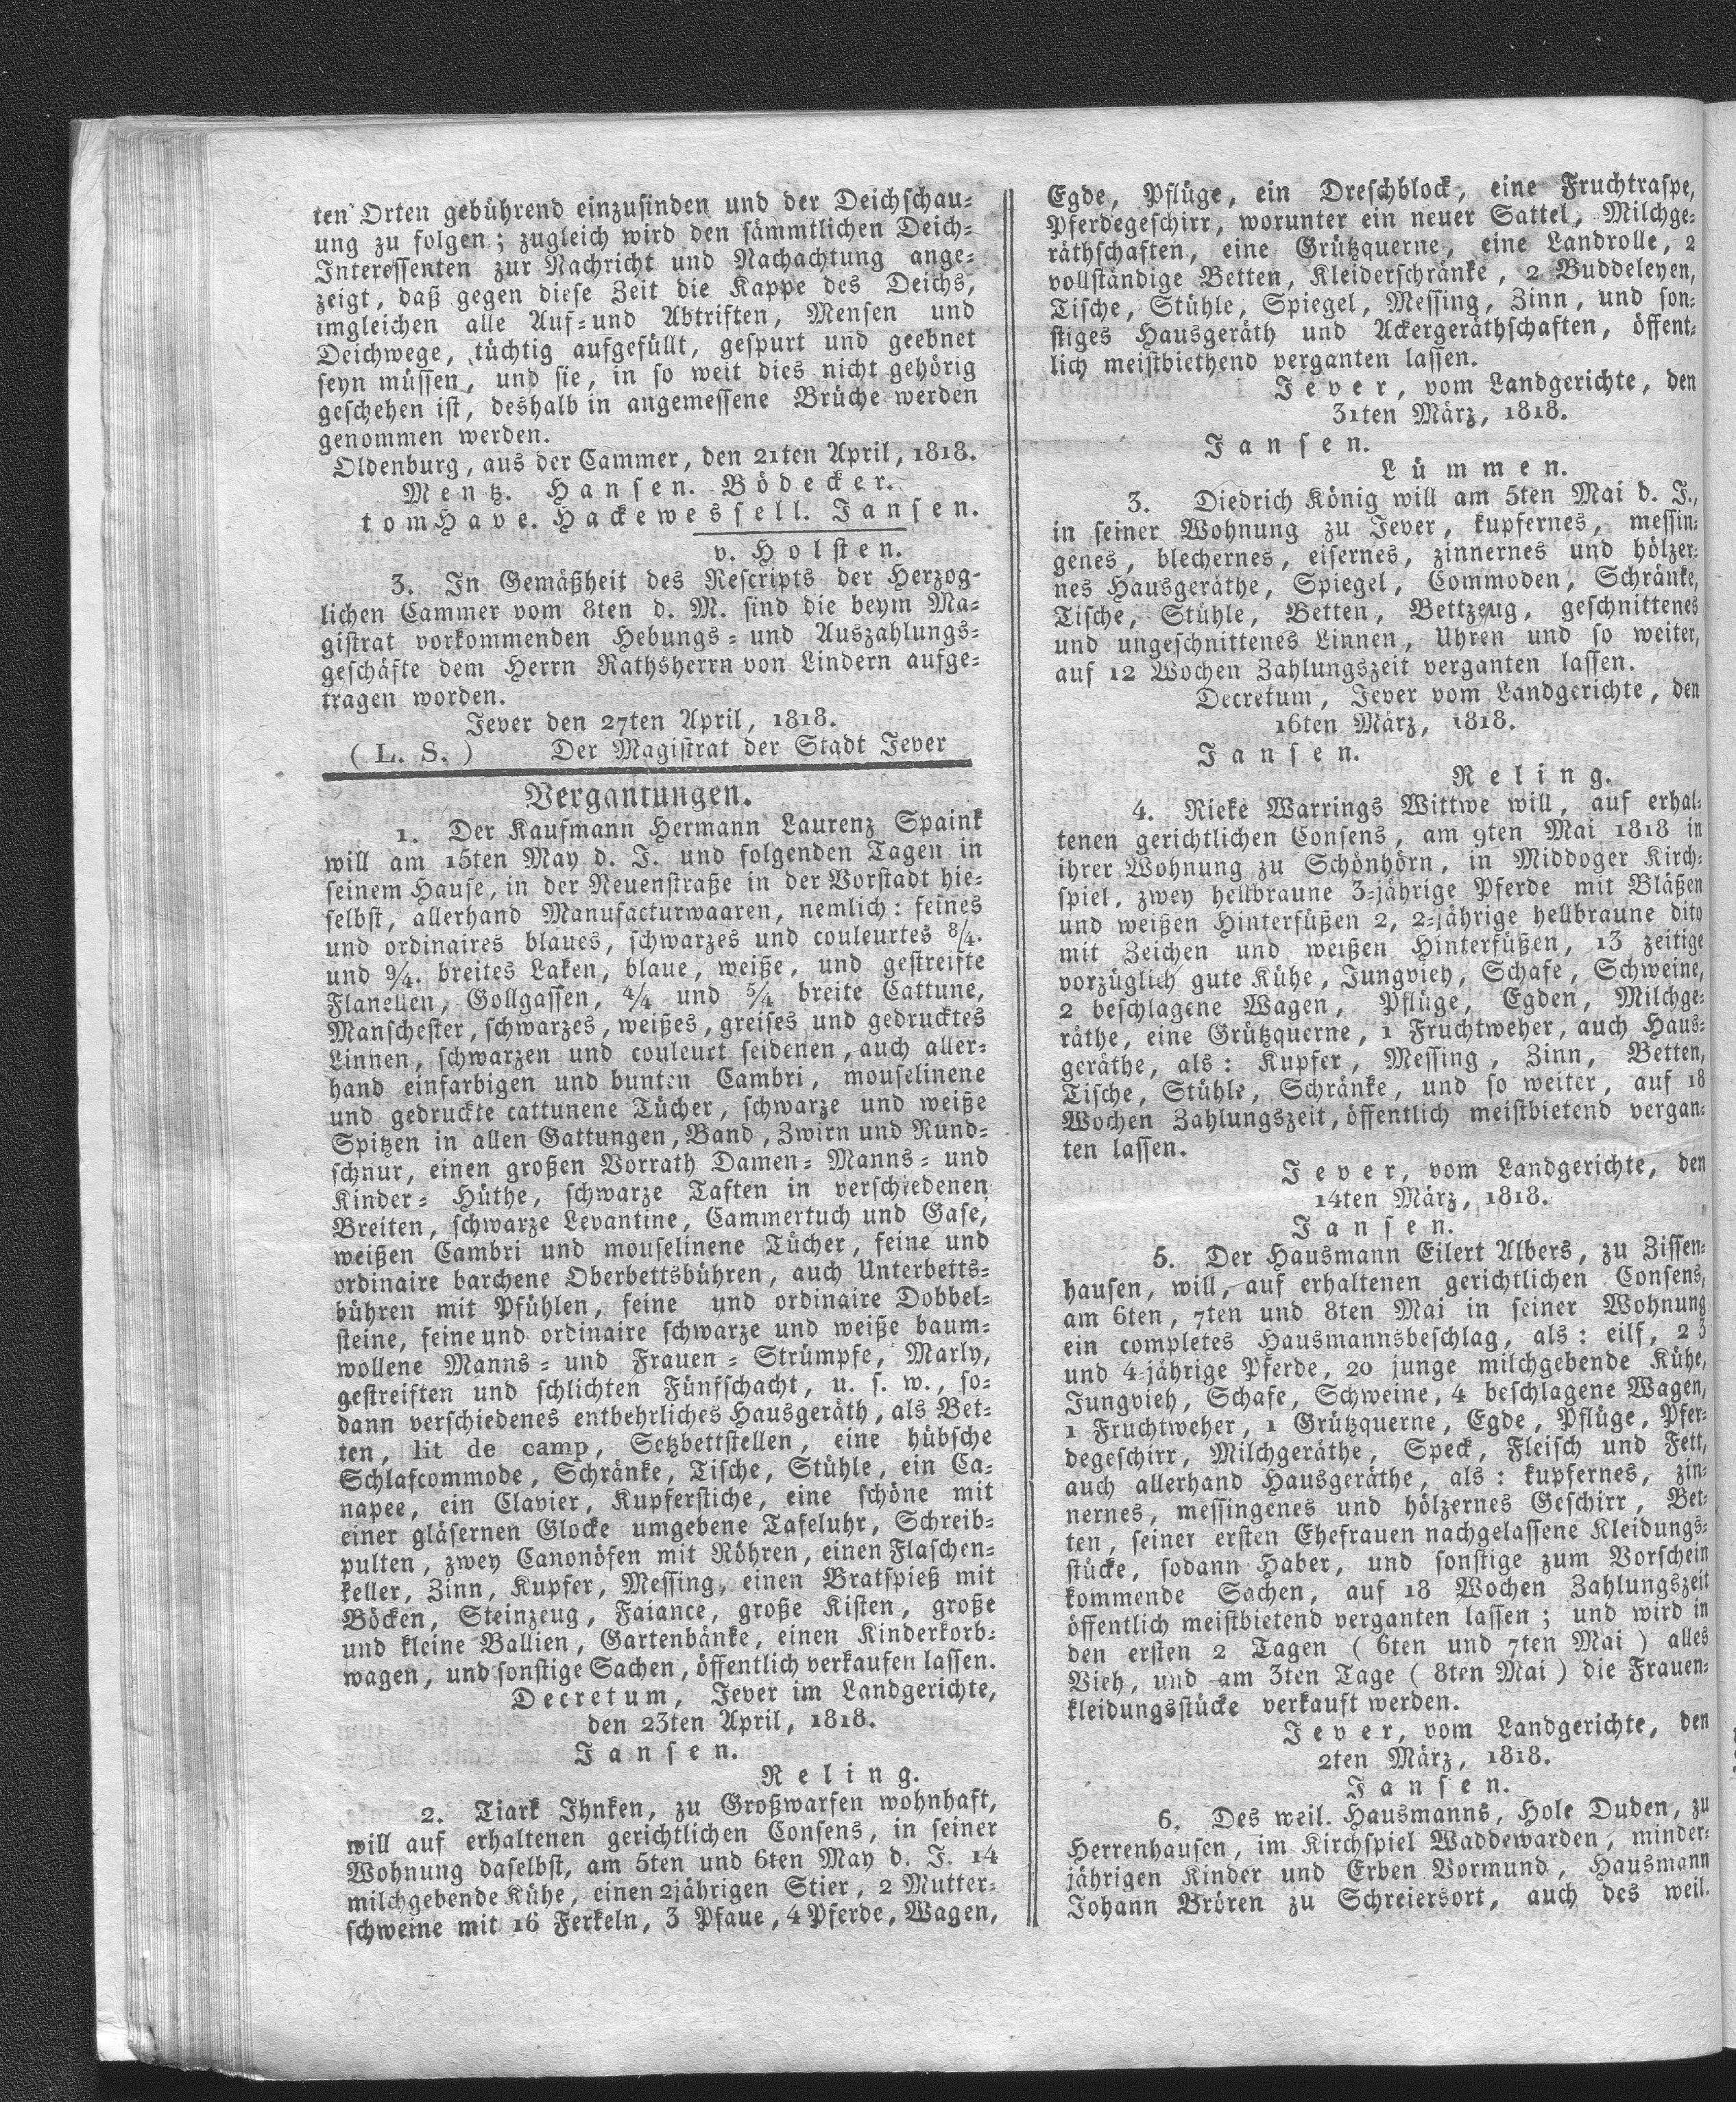 ten Orten gebührend einzufinden und der Deichschau-
ung zu folgen; zugleich wird den sämmtlichen Deich-
Interessenten zur Nachricht und Nachachtung ange-
zeigt, daß gegen diese Zeit die Kappe des Deichs,
imgleichen alle Auf- und Abtriften, Mensen und
Deichwege, tüchtig aufgefüllt, gespurt und geebnet
seyn müssen, und sie, in so weit dies nicht gehörig
geschehen ist, deshalb in angemessene Brüche werden
genommen werden.
Oldenburg, aus der Cammer, den 21ten April, 1818.
Mentz. Hansen. Bödecker.
tom Have. Hackewessell. Jansen.
v. Holsten.
3. In Gemäßheit des Rescripts der Herzog-
lichen Cammer vom 8ten d. M. sind die beym Ma-
gistrat vorkommenden Hebungs- und Auszahlungs-
geschäfte dem Herrn Rathsherrn von Lindern aufge-
tragen worden.
Jever den 27ten April, 1818.
( L. S. ) Der Magistrat der Stadt Jever
Vergantungen.
1. Der Kaufmann Hermann Laurenz Spaink
will am 15ten May d. J. und folgenden Tagen in
seinem Hause, in der Neuenstraße in der Vorstadt hie-
selbst, allerhand Manufacturwaaren, nemlich: feines
und ordinaires blaues, schwarzes und couleurtes 8/4.
und 9/4. breites Laken, blaue, weiße, und gestreifte
Flanellen, Gollgassen, 4/4 und 5/4 breite Cattune,
Manschester, schwarzes, weißes, greises und gedrucktes
Linnen, schwarzen und couleurt seidenen, auch aller-
hand einfarbigen und bunten Cambri, mouselinene
und gedruckte cattunene Tücher, schwarze und weiße
Spitzen in allen Gattungen, Band, Zwirn und Rund-
schnur, einen großen Vorrath Damen- Manns- und
Kinder- Hüthe, schwarze Taften in verschiedenen
Breiten, schwarze Levantine, Cammertuch und Gase,
weißen Cambri und mouselinene Tücher, feine und
ordinaire barchene Oberbettsbühren, auch Unterbetts-
bühren mit Pfühlen, feine und ordinaire Dobbel-
steine, feine und ordinaire schwarze und weiße baum-
wollene Manns- und Frauen- Strümpfe, Marly,
gestreiften und schlichten Fünfschacht, u. s. w., so-
dann verschiedenes entbehrliches Hausgeräth, als Bet-
ten, lit de camp, Setzbettstellen, eine hübsche
Schlafcommode, Schränke, Tische, Stühle, ein Ca-
napee, ein Clavier, Kupferstiche, eine schöne mit
einer gläsernen Glocke umgebene Tafeluhr, Schreib-
pulten, zwey Canonöfen mit Röhren, einen Flaschen-
keller, Zinn, Kupfer, Messing, einen Bratspieß mit
Böcken, Steinzeug, Faiance, große Kisten, große
und kleine Ballien, Gartenbänke, einen Kinderkorb-
wagen, und sonstige Sachen, öffentlich verkaufen lassen.
Decretum, Jever im Landgerichte,
den 23ten April, 1818.
Jansen.
Reling.
2. Tiark Ihnken, zu Großwarfen wohnhaft,
will auf erhaltenen gerichtlichen Consens, in seiner
Wohnung daselbst, am 5ten und 6ten May d. J. 14
milchgebende Kühe, einen 2jährigen Stier, 2 Mutter-
schweine mit 16 Ferkeln, 3 Pfaue, 4 Pferde, Wagen,
Egde, Pflüge, ein Dreschblock, eine Fruchtraspe,
Pferdegeschirr, worunter ein neuer Sattel, Milchge-
räthschaften, eine Grützquerne, eine Landrolle, 2
vollständige Betten, Kleiderschränke, 2 Buddeleyen,
Tische, Stühle, Spiegel, Messing, Zinn, und son-
stiges Hausgeräth und Ackergeräthschaften, öffent-
lich meistbiethend verganten lassen.
Jever, vom Landgerichte, den
31ten März, 1818.
Jansen.
Lümmen.
3. Diedrich König will am 5ten Mai d. J.,
in seiner Wohnung zu Jever, kupfernes, messin-
genes, blechernes, eisernes, zinnernes und hölzer-
nes Hausgeräthe, Spiegel, Commoden, Schränke,
Tische, Stühle, Betten, Bettzeug, geschnittenes
und ungeschnittenes Linnen, Uhren und so weiter,
auf 12 Wochen Zahlungszeit verganten lassen.
Decretum, Jever vom Landgerichte, den
16ten März, 1818.
Jansen.
Reling.
4. Rieke Warrings Wittwe will, auf erhal-
tenen gerichtlichen Consens, am 9ten Mai 1818 in
ihrer Wohnung zu Schönhörn, in Middoger Kirch-
spiel, zwey hellbraune 3-jährige Pferde mit Bläßen
und weißen Hinterfüßen 2, 2-jährige hellbraune dito
mit Zeichen und weißen Hinterfüßen, 13 zeitige
vorzüglich gute Kühe, Jungvieh, Schafe, Schweine,
2 beschlagene Wagen, Pflüge, Egden, Milchge-
räthe, eine Grützquerne, 1 Fruchtweher, auch Haus-
geräthe, als: Kupfer, Messing, Zinn, Betten,
Tische, Stühle, Schränke, und so weiter, auf 18
Wochen Zahlungszeit, öffentlich meistbietend vergan-
ten lassen.
Jever, vom Landgerichte, den
14ten März, 1818.
Jansen.
5. Der Hausmann Eilert Albers, zu Zissen-
hausen, will, auf erhaltenen gerichtlichen Consens,
am 6ten, 7ten und 8ten Mai in seiner Wohnung
ein completes Hausmannsbeschlag, als: eilf, 2 3
und 4-jährige Pferde, 20 junge milchgebende Kühe,
Jungvieh, Schafe, Schweine, 4 beschlagene Wagen,
1 Fruchtweher, 1 Grützquerne, Egde, Pflüge, Pfer-
degeschirr, Milchgeräthe, Speck, Fleisch und Fett,
auch allerhand Hausgeräthe, als: kupfernes, zin-
nernes, messingenes und hölzernes Geschirr, Bet-
ten, seiner ersten Ehefrauen nachgelassene Kleidungs-
stücke, sodann Haber, und sonstige zum Vorschein
kommende Sachen, auf 18 Wochen Zahlungszeit
öffentlich meistbietend verganten lassen; und wird in
den ersten 2 Tagen ( 6ten und 7ten Mai ) alles
Vieh, und am 3ten Tage ( 8ten Mai ) die Frauen-
kleidungsstücke verkauft werden.
Jever, vom Landgerichte, den
2ten März, 1818.
Jansen.
6. Des weil. Hausmanns, Hole Duden, zu
Herrenhausen, im Kirchspiel Waddewarden, minder-
jährigen Kinder und Erben Vormund, Hausmann
Johann Brören zu Schreiersort, auch des weil.